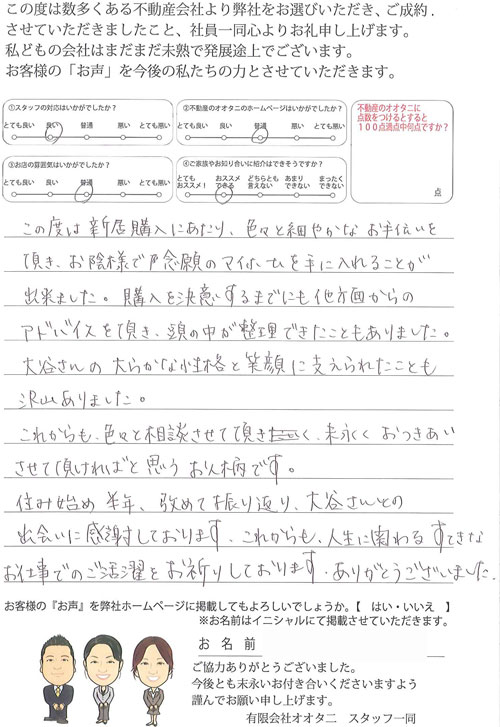 この度は数多くある不動産会社より弊社をお選びいただき、ご成約.
させていただきましたこと、社員一同心よりお礼申し上げます。
私どもの会社はまだまだ未熟で発展途上でございます。
お客様の「お声」を今後の私たちの力とさせていただきます。
①スタッフの対応はいかがでしたか?
とても良い 良い 普通 悪い とても悪い
②不動産のオオタニのホームページはいかがでしたか?
とても良い 良い 普通 悪い とても悪い
③お店の雰囲気はいかがでしたか?
とても良い 良い 普通 悪い とても悪い
④ご家族やお知り合いに紹介はできそうですか?
とても オススメ どちらとも あまり まったく
おススメ! できる 言えない できない できない
不動産のオオタニに
点数をつけるとすると
100点満点中何点ですか?
点
この度は新居購入にあたり、色々と細やかなお手伝いを
頂き、お陰様で念願のマイホームを手に入れることが
出来ました。購入を決意するまでにも他方面からの
アドバイスを頂き、頭の中が整理できたこともありました。
大谷さんの大らかな性格と笑顔に支えられたことも
沢山ありました。
これからも、色々と相談させて頂き 末永くおつきあい
させて頂ければと思うお人柄です。
住み始め半年、改めて振り返り、大谷さんとの
出会いに感謝しております。これからも、人生に関わるすてきな
お仕事でのご活躍をお祈りしております。ありがとうございました.
お客様の『お声』を弊社ホームページに掲載してもよろしいでしょうか。【 はい・いいえ 】
※お名前はイニシャルにて掲載させていただきます。
お 名 前
ご協力ありがとうございました。
今後とも末永いお付き合いくださいますよう
謹んでお願い申し上げます。
有限会社オオタニ スタッフ一同